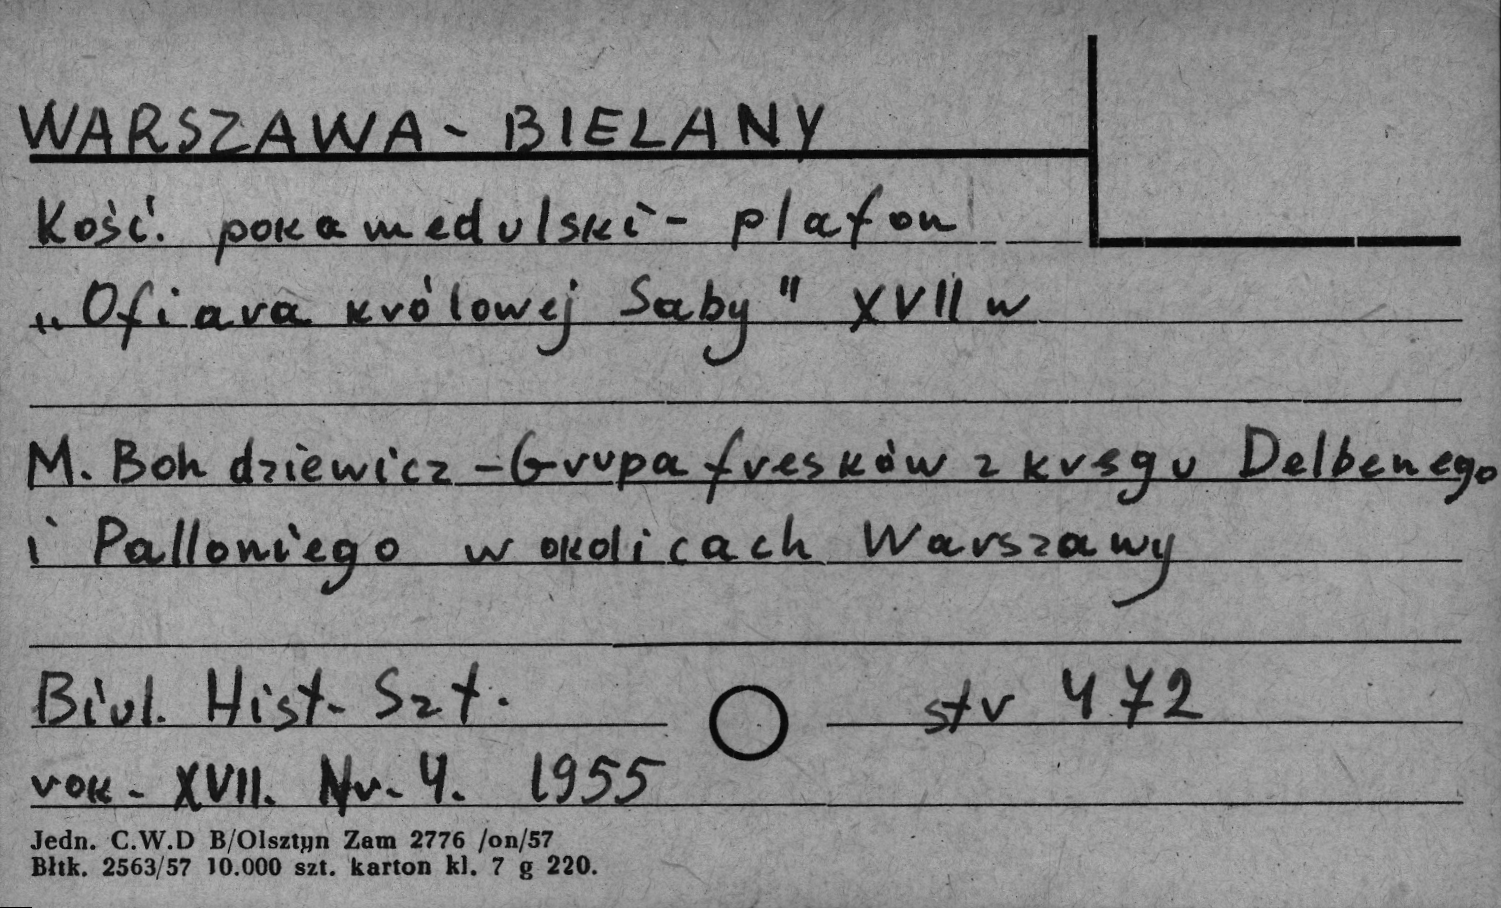 WARSZAWA - BIELANY
Kość. pokamedulski - plafon
„Ofiara królowej Saby" XVII w
M. Bohdziewicz - Grupa fresków z kręgu Delbenego
i Palloniego w okolicach Warszawy
Biul. Hist. Szt. str 472
rok - XVII. Nr. 4. 1955
Jedn. C.W.D B/Olsztyn Zam 2776 /on/57
Błtk. 2563/57 10.000 szt. karton kl. 7 g 220.